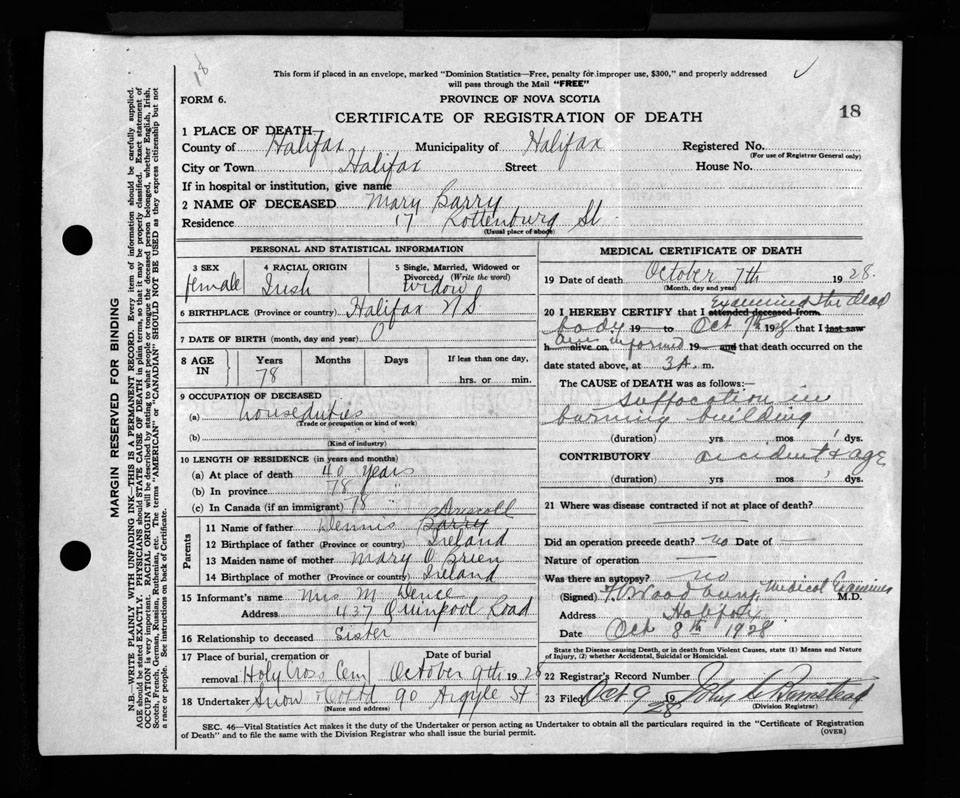 18
This form if placed in an envelope, marked "Dominion Statistics—Free, penalty for improper use, $300," and properly addressed
will pass through the Mail "FREE"
FORM 6.
PROVINCE OF NOVA SCOTIA
CERTIFICATE OF REGISTRATION OF DEATH
18
1 PLACE OF DEATH
County of Halifax Municipality of Halifax Registered No.
(For use of Registrar General only)
City or Town Halifax Street House No.
If in hospital or institution, give name
2 NAME OF DECEASED Mary Barry
Residence 17 Rottenburg St
(Usual place of abode)
PERSONAL AND STATISTICAL INFORMATION
3 SEX female
4 RACIAL ORIGIN Irish
5 Single, Married, Widowed or
Divorced (Write the word)
Widow
6 BIRTHPLACE (Province or country) Halifax N.S.
7 DATE OF BIRTH (month, day and year)
8 AGE IN Years 78 Months Days If less than one day,
hrs. or min.
9 OCCUPATION OF DECEASED
(a) house duties
(Trade or occupation or kind of work)
(b)
(Kind of industry)
10 LENGTH OF RESIDENCE (in years and months)
(a) At place of death 40 years
(b) In province 78 "
(c) In Canada (if an immigrant) 78 "
Parents
11 Name of father Dennis Barry Driscoll
12 Birthplace of father (Province or country) Ireland
13 Maiden name of mother Mary O'Brien
14 Birthplace of mother (Province or country) Ireland
15 Informant's name Mrs M
Address 437 Quinpool Road
16 Relationship to deceased Sister
17 Place of burial, cremation or
removal Holy Cross Cem
Date of burial
October 9th 1928
18 Undertaker Snow & Co Ltd 90 Argyle St
(Name and address)
MEDICAL CERTIFICATE OF DEATH
19 Date of death October 7th 1928.
(Month, day and year)
examined the dead
20 I HEREBY CERTIFY that I attended deceased from
body 19 to Oct 7th 1928 that I last saw
h alive on informed 19 and that death occurred on the
date stated above, at 3 A. m.
The CAUSE of DEATH was as follows:—
Suffocation in
burning building
(duration) yrs mos dys.
CONTRIBUTORY accident & age
(duration) yrs mos dys.
21 Where was disease contracted if not at place of death?
Did an operation precede death? no Date of
Nature of operation
Was there an autopsy? no
(Signed) Woodbury Medical Examiner M.D.
Address Halifax
Date Oct 8th 1928
State the Disease causing Death, or in death from Violent Causes, state (1) Means and Nature
of Injury, (2) whether Accidental, Suicidal or Homicidal.
22 Registrar's Record Number
23 Filed Oct 9 1928
(Division Registrar)
SEC. 46—Vital Statistics Act makes it the duty of the Undertaker or person acting as Undertaker to obtain all the particulars required in the "Certificate of Registration
of Death" and to file the same with the Division Registrar who shall issue the burial permit.
(OVER)
MARGIN RESERVED FOR BINDING
N.B.—WRITE PLAINLY WITH UNFADING INK—THIS IS A PERMANENT RECORD. Every item of information should be carefully supplied.
AGE should be stated EXACTLY. PHYSICIANS should STATE CAUSE OF DEATH in plain terms, so that it may be properly classified. Exact statement of
OCCUPATION is very important. RACIAL ORIGIN will be described by stating to what people or tongue the deceased person belonged, whether English, Irish,
Scotch, French, German, Russian, Ruthenian, etc. The terms "AMERICAN" or "CANADIAN" SHOULD NOT BE USED as they express citizenship but not
a race or people. See instructions on back of Certificate.